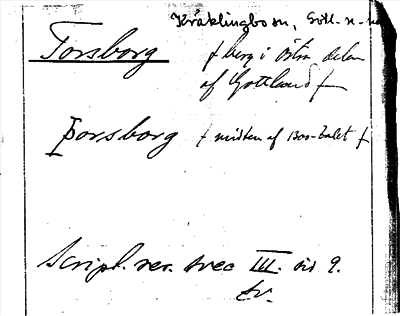 Kräklingbo sn, Gotl. n.
Torsborg
f berg i östra delen
af Gottland f
Þorsborg f midten af 1300-talet f
Script. rer. svec III. sid 9.